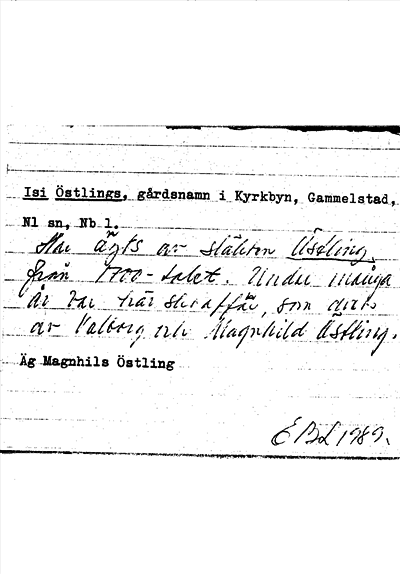 Isi Östlings, gårdsnamn i Kyrkbyn, Gammelstad,
Nl sn, Nb l.
Har ägts av släkten Östling,
från 1700-talet. Under många
år var här skraffär, som drevs
av Valborg och Magnhild Östling.
Äg Magnhils Östling
EBL 1989.